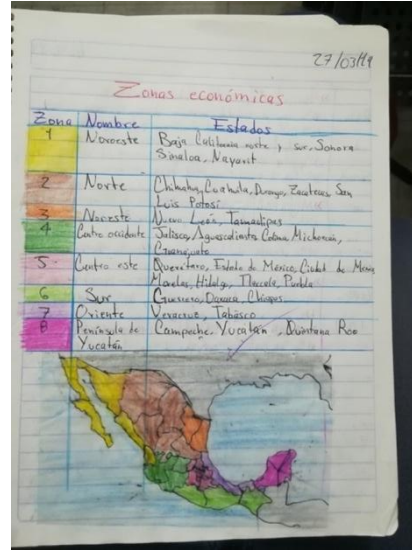 27/03/19
Zonas económicas
Zona Nombre Estados
1 Noroeste Baja California norte y sur, Sonora
Sinaloa, Nayarit
2 Norte Chihuhu, Coahula, Durango, Zacatecas, San
Luis Potosí
3 Noreste Nuevo León, Tamaulipas
4 Centro occidente Jalisco, Aguascalientes Colima Michoacán,
Guanajuato
5 Centro este Querétaro, Estado de México, Ciudad de México
Morelos, Hidalgo, Tlaxcala, Puebla
6 Sur Guerrero, Oaxaca, Chiapas
7 Oriente Veracruz, Tabasco
8 Península de Campeche, Yucatán, Quintana Roo
Yucatán